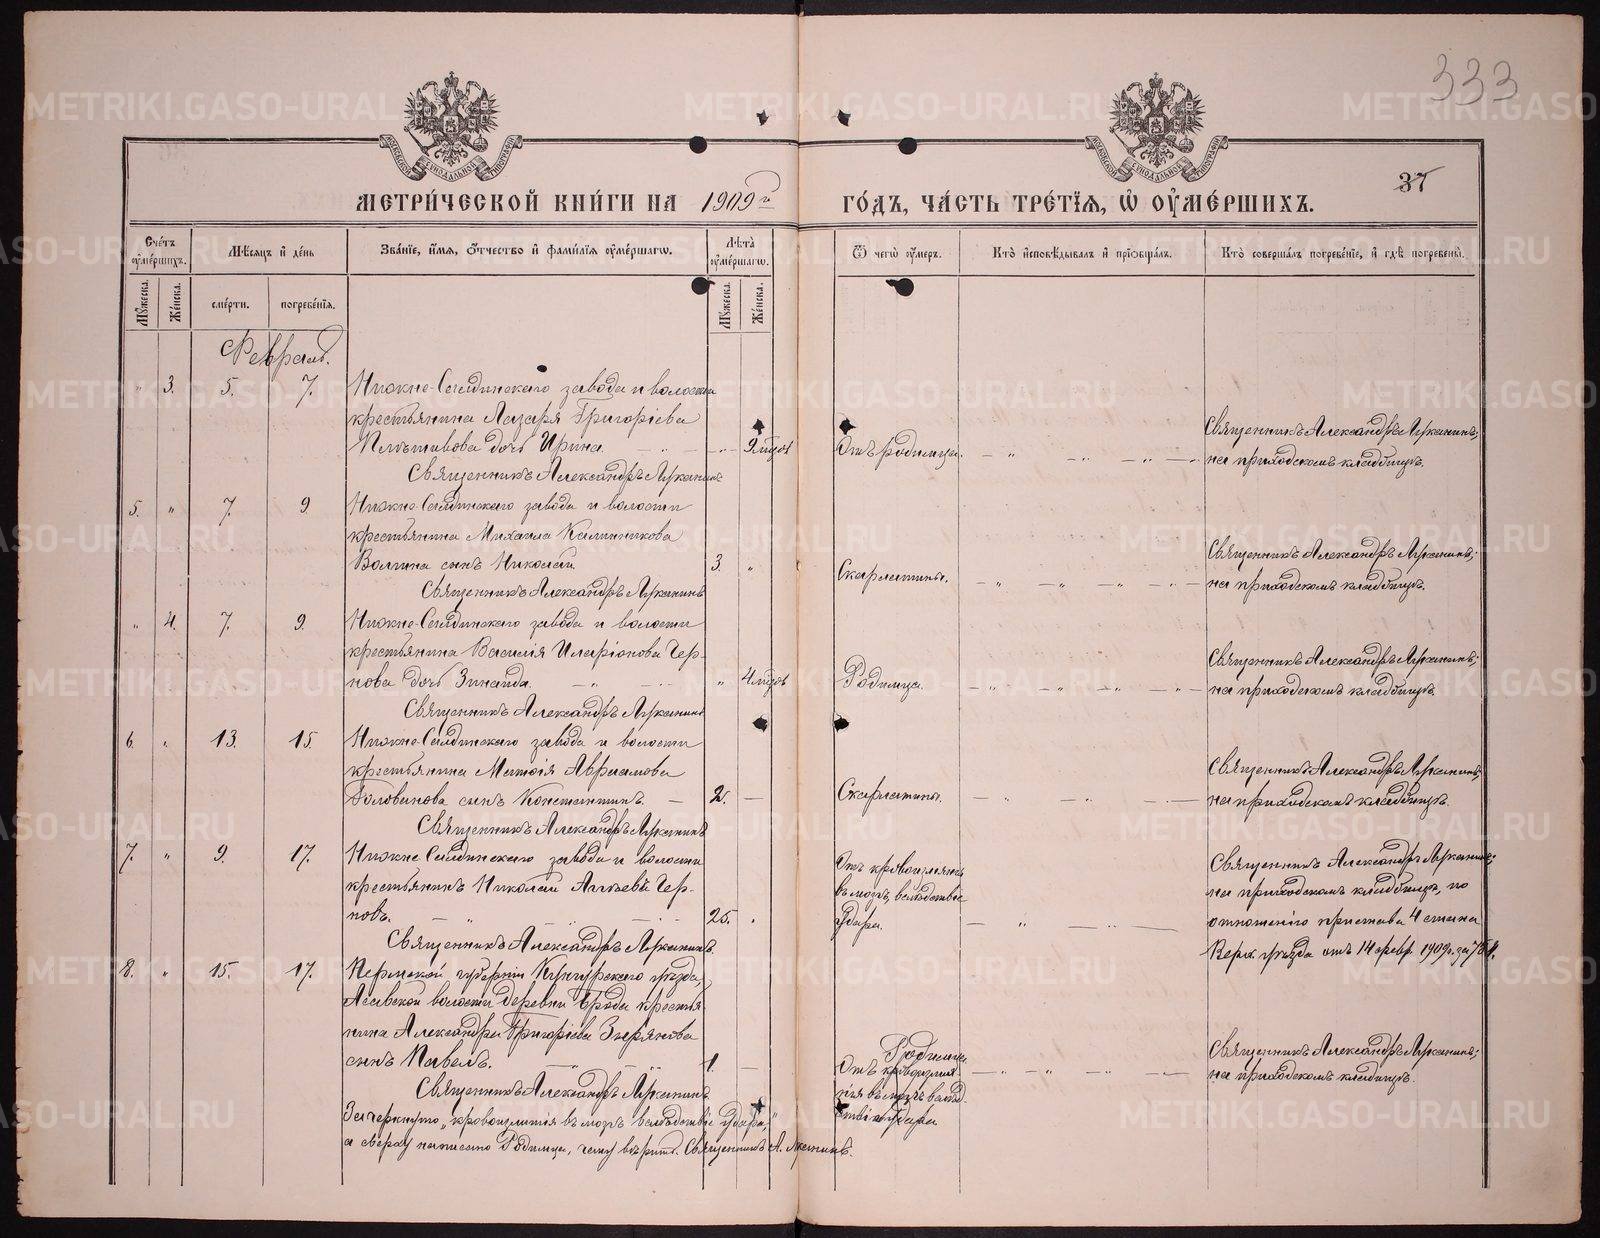 333
37
МЕТРИ́ЧЕСКОЙ КНИ́ГИ НА 1909й ГО́ДЪ, ЧА́СТЬ ТРЕ́ТІЯ, Ѡ ОУМЕ́РШИХЪ.
Сче́тъ оуме́ршихъ.
Мѣсяцъ и де́нь
Зва́ніе, и́мя, ѻтчество и фами́лія оуме́ршагѡ.
Лѣта̀ оуме́ршагѡ.
Ѿ чегѡ̀ оу́меръ.
Кто̀ исповѣдывалъ и пріобща́лъ.
Кто̀ соверша́лъ погребе́ніе, и гдѣ̀ погребены̀.
Му́жеска. Же́нска. сме́рти. погребе́нія. Му́жеска. Же́нска.
Февраль.
" 3. 5. 7. Нижне-Салдинскаго завода и волости
крестьянина Лазаря Григоріева
дочь Ирина. 2 мѣс Отъ родимца.
Священникъ Александръ Луканинъ;
на приходскомъ кладбищѣ.
Священникъ Александръ Луканинъ
5. " 7. 9. Нижне-Салдинскаго завода и волости
крестьянина Михаила Калинникова
Волгина сынъ Николай. 3. " Скарлатины.
Священникъ Александръ Луканинъ;
на приходскомъ кладбищѣ.
Священникъ Александръ Луканинъ
" 4. 7. 9. Нижне-Салдинскаго завода и волости
крестьянина Василія Иларіонова Чер-
нова дочь Зинаида. " 4 мѣс Родимца.
Священникъ Александръ Луканинъ;
на приходскомъ кладбищѣ.
Священникъ Александръ Луканинъ
6. " 13. 15. Нижне-Салдинскаго завода и волости
крестьянина Матѳія Авраамова
Головинова сынъ Константинъ. 2. — Скарлатины.
Священникъ Александръ Луканинъ;
на приходскомъ кладбищѣ.
Священникъ Александръ Луканинъ
7. " 9. 17. Нижне-Салдинскаго завода и волости
крестьянинъ Николай Чер-
новъ. 25. "
Отъ кровоизліянія
въ мозгъ, вслѣдствіе
удара.
Священникъ Александръ Луканинъ;
на приходскомъ кладбищѣ, по
отношенію пристава 4 стана
Верх. уѣзда отъ 14 февр. 1909г. за №
Священникъ Александръ Луканинъ.
8. " 15. 17. Пермской губерніи Кунгурскаго уѣзда,
Асовской волости деревни Броды крестья-
нина Александра Григоріева Зырянова
сынъ Павелъ. 1. —
Родимца
Отъ кровоизлія-
нія въ мозгъ вслѣд-
ствіе удара
Священникъ Александръ Луканинъ;
на приходскомъ кладбищѣ.
Священникъ Александръ Луканинъ
Зачеркнуто „кровоизліянія въ мозгъ вслѣдствіе удара,"
а сверху написано Родимца, чему вѣрить. Священникъ А. Луканинъ.
METRIKI.GASO-URAL.RU